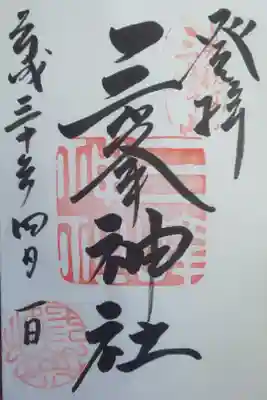 登拝
三峯神社
平成三十年四月一日